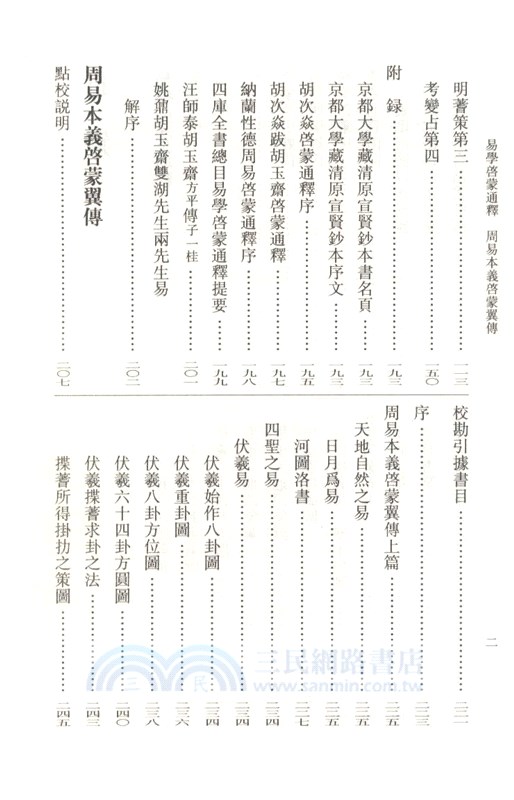 易學啓蒙通釋　周易本義啓蒙翼傳
二
明蓍策第三……一一三
考變占第四……一五〇
附　錄……一九三
京都大學藏清原宣賢鈔本書名頁……一九三
京都大學藏清原宣賢鈔本序文……一九三
胡次焱啓蒙通釋序……一九五
胡次焱跋胡玉齋啓蒙通釋……一九七
納蘭性德周易啓蒙通釋序……一九八
四庫全書總目易學啓蒙通釋提要……一九九
汪師泰胡玉齋方平傳子一桂……二〇一
姚鼐胡玉齋雙湖先生兩先生易
解序……二〇二
周易本義啓蒙翼傳
點校說明……二〇七
校勘引據書目……二二一
序……二二三
周易本義啓蒙翼傳上篇……二二五
天地自然之易……二二五
日月爲易……二二五
河圖洛書……二二七
四聖之易……二三四
伏羲易……二三四
伏羲始作八卦圖……二三四
伏羲重卦圖……二三六
伏羲八卦方位圖……二三八
伏羲六十四卦方圓圖……二四〇
伏羲揲蓍求卦之法……二四三
揲蓍所得掛扐之策圖……二四五
三民網路書店
www.sanmin.com.tw
三　民